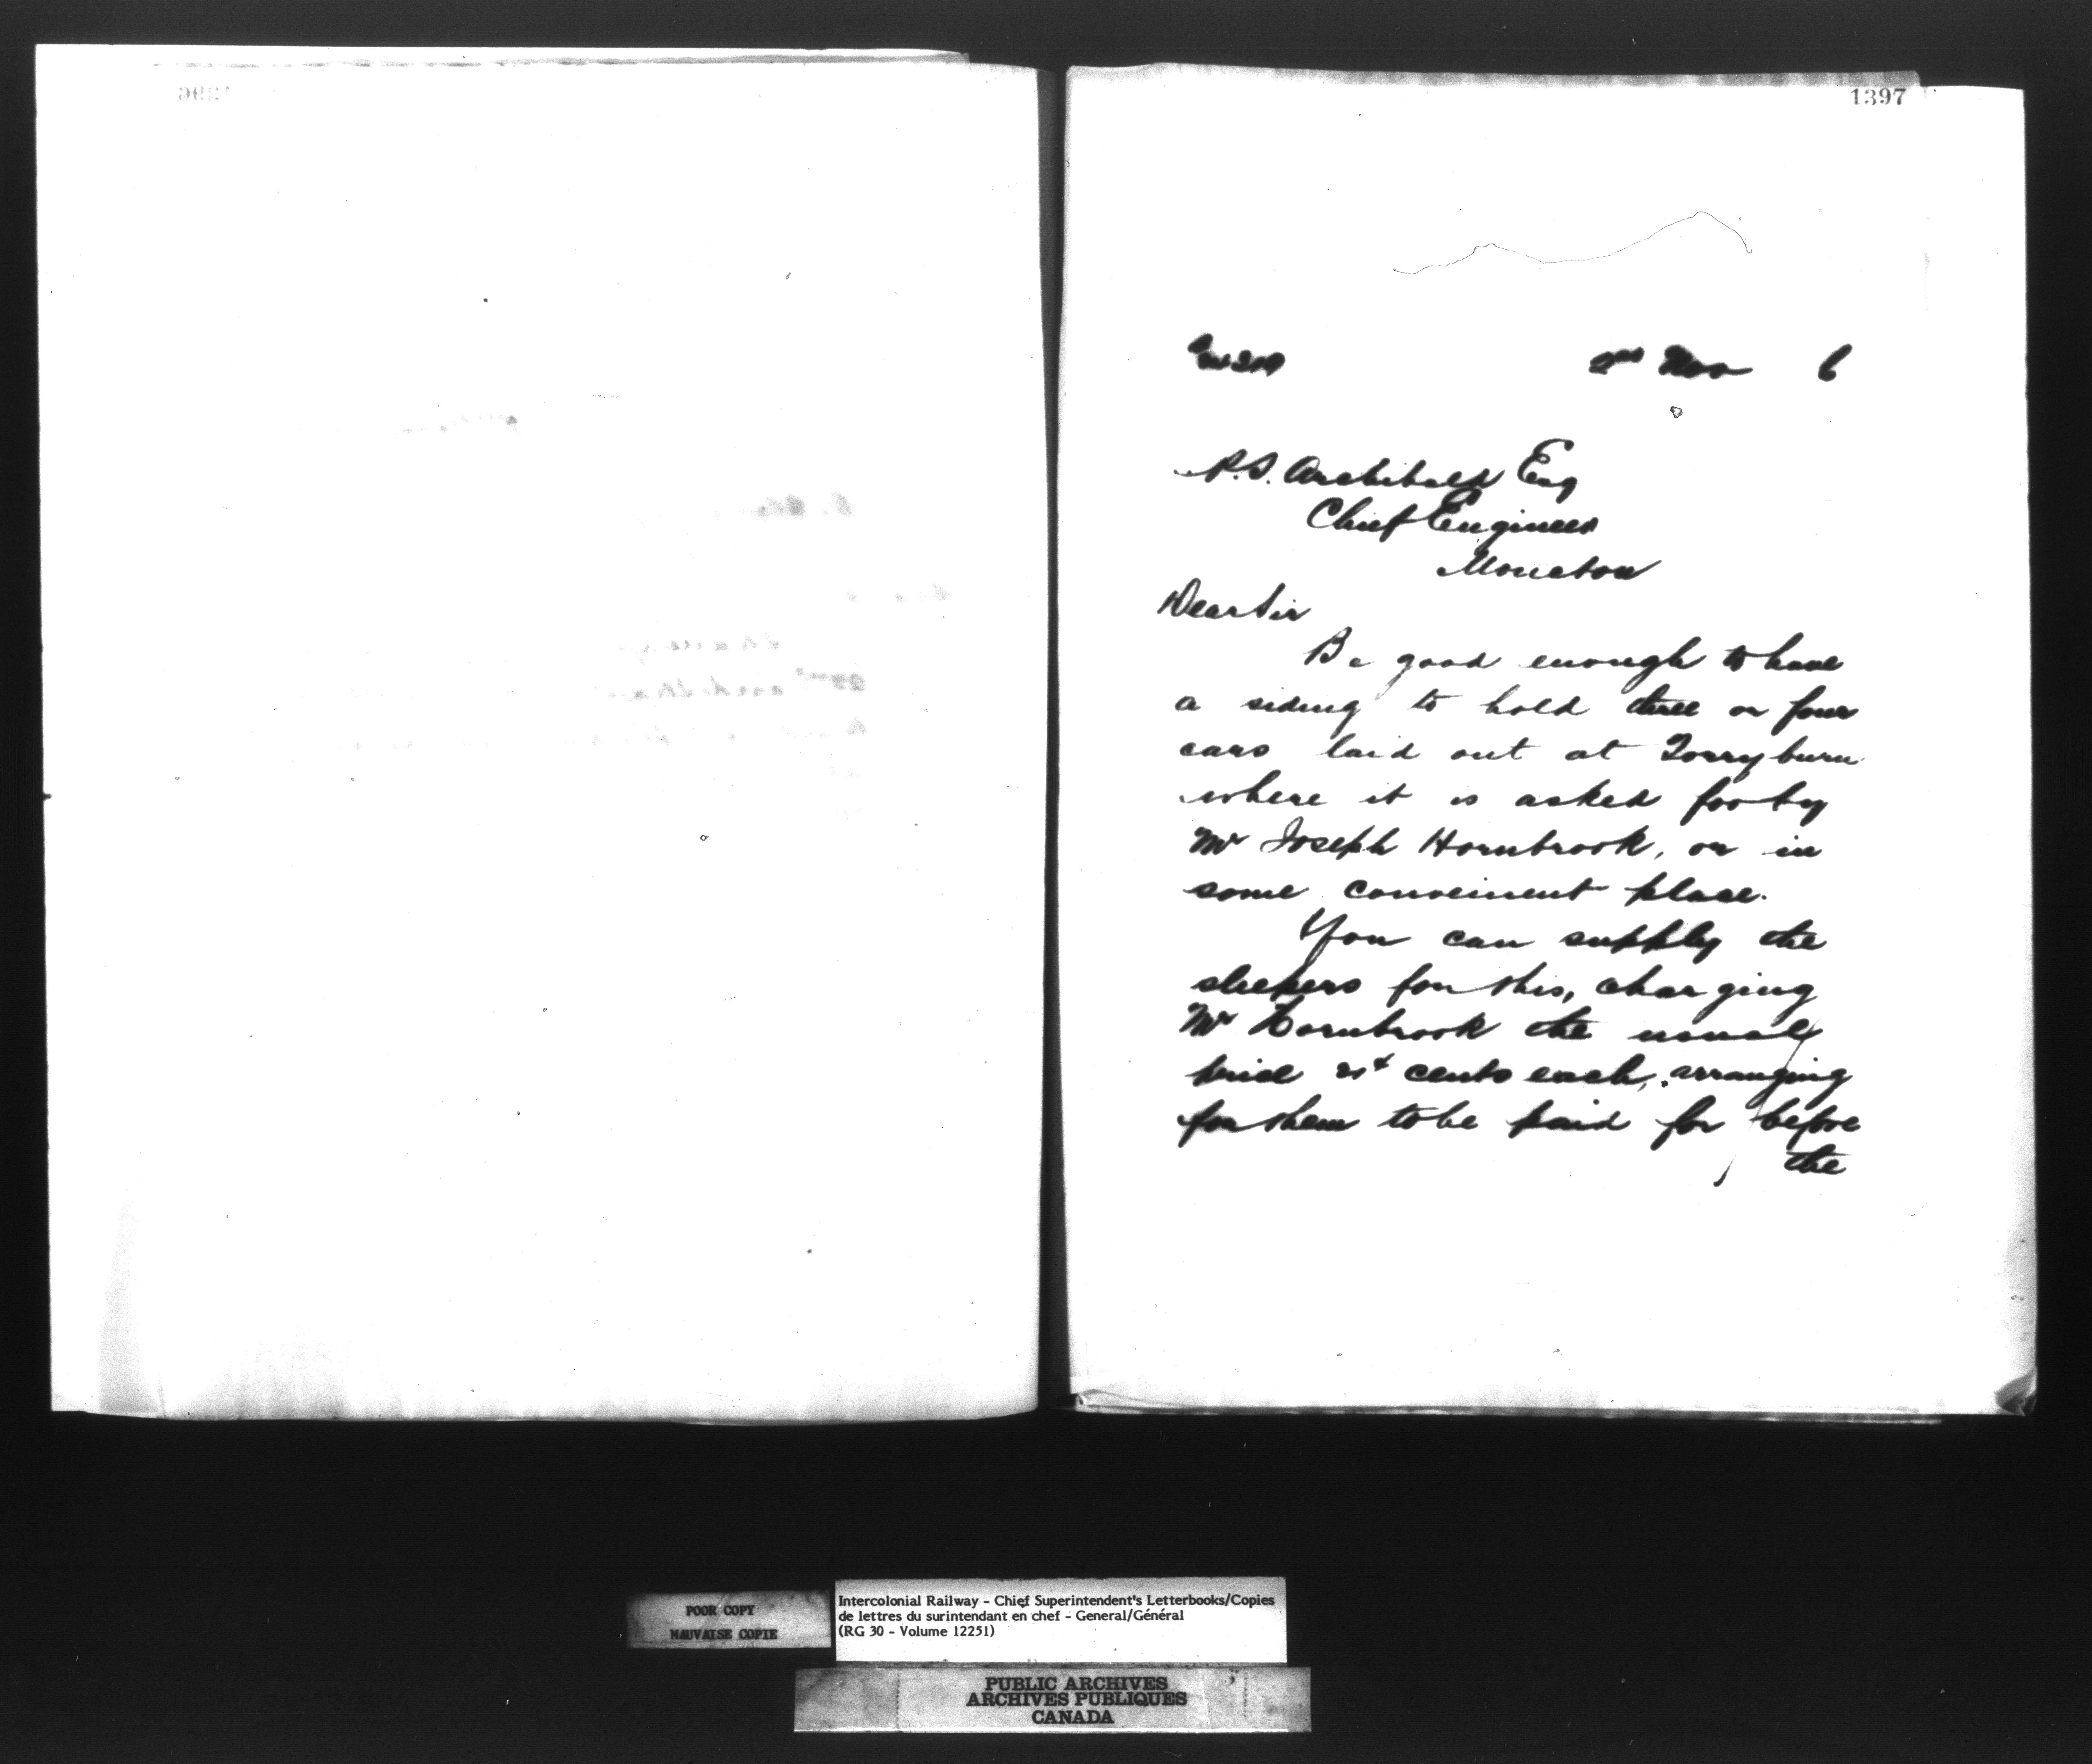 1397
2nd Nov 6
P.S. Archibald Esq
Chief Engineer
Moncton
Dear Sir
Be good enough to have
a siding to hold three or four
cars laid out at Torryburn
where it is asked for by
Mr Joseph Hornbrook, or in
some conveinent place.
You can supply the
sleepers for this, charging
Mr Hornbrook the usual
price cents each, arranging
for them to be paid for before
the
POOR COPY
MAUVAISE COPIE
Intercolonial Railway - Chief Superintendent's Letterbooks/Copies
de lettres du surintendant en chef - General/Général
(RG 30 - Volume 12251)
PUBLIC ARCHIVES
ARCHIVES PUBLIQUES
CANADA